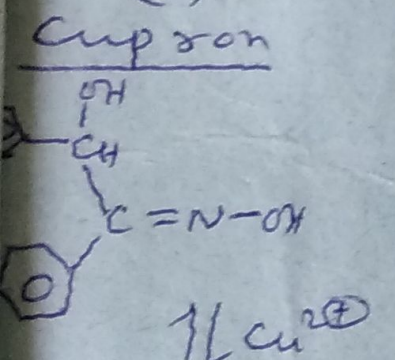 Cupron
OH
CH
C=N-OH
Cu2+